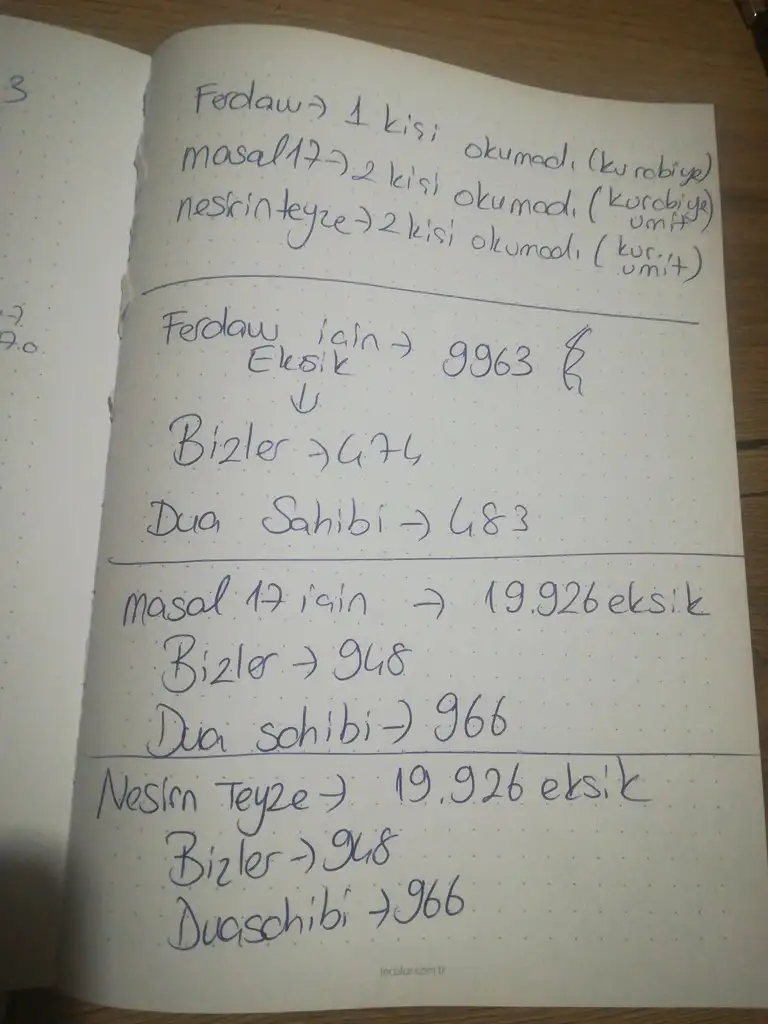 3
Ferdaw → 1 kişi okumadı (kurabiye)
masal17 → 2 kişi okumadı (kurabiye
umit)
nesrin teyze → 2 kişi okumadı (kur..
umit)
Ferdaw için → 9963
Eksik
↓
Bizler → 474
Dua Sahibi → 483
masal 17 için → 19.926 eksik
Bizler → 948
Dua sahibi → 966
Nesrn Teyze → 19.926 eksik
Bizler → 948
Dua sahibi → 966